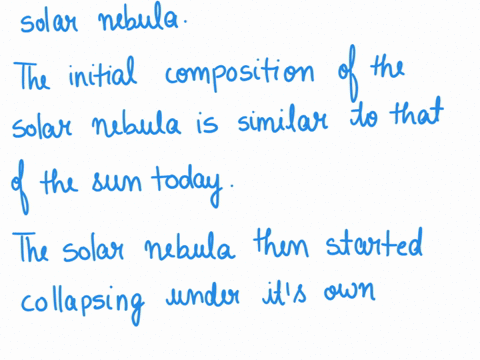 solar nebula.
The initial composition of the
solar nebula is similar to that
of the sun today.
The solar nebula then started
collapsing under it's own